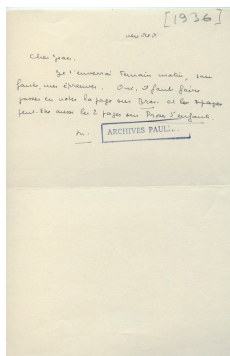 [1936]
vendredi
Cher Jean,
Je t'enverrai demain matin, sans
faute, mes épreuves. Oui, il faut faire
passer en notes la page sur Bres. et les 2 pages
peut-être aussi les 2 pages sur
M.
ARCHIVES PAUL